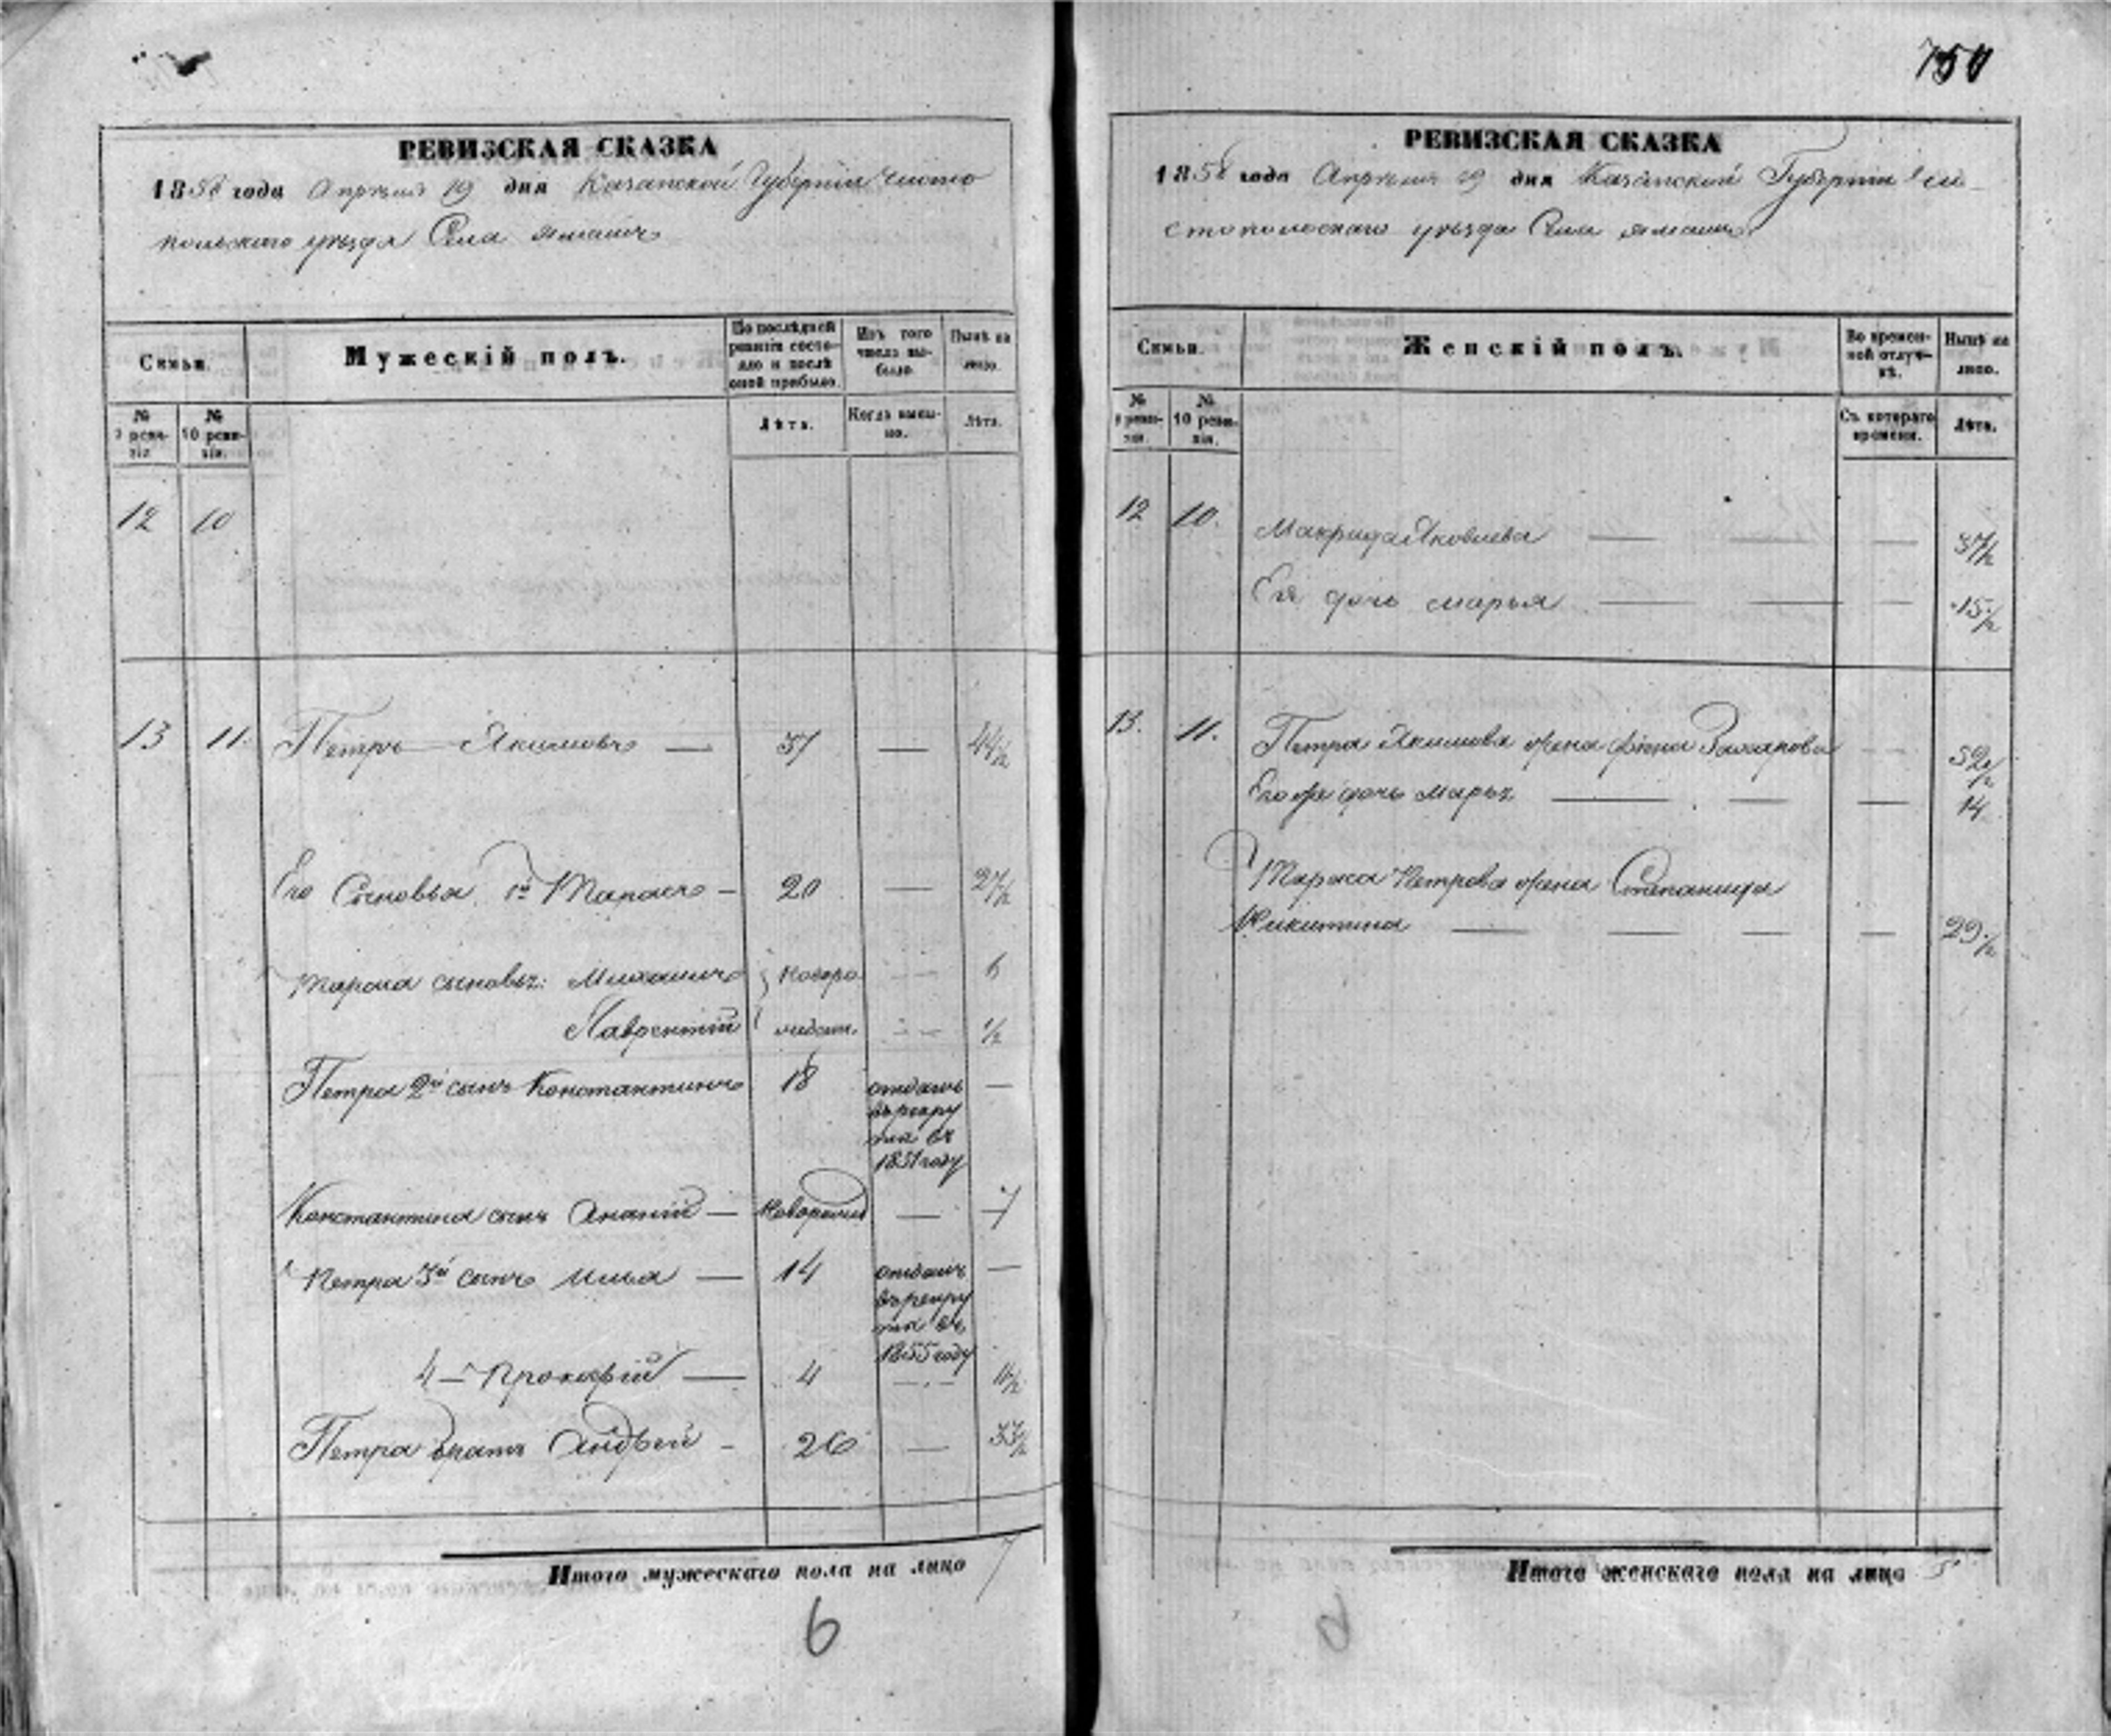 750
РЕВИЗСКАЯ СКАЗКА
1858 года Апрѣля 19 дня Казанской Губернiи Чисто
польскаго уѣзда Села
Семьи.
Мужескiй полъ.
По послѣдней ревизiи состояло и послѣ оной прибыло.
Изъ того числа выбыло.
Нынѣ на лицо.
№ 9 ревизiи.
№ 10 ревизiи.
Лѣта.
Когда именно.
Лѣта.
12 10
13 11. Петръ Якимовъ — 37 — 44½
Его Сыновья, 1й Тарасъ — 20 — 27½
Тараса сыновья: Михаилъ } Новоро — 6
Лаврентiй } ½
Петра 2й сынъ Константинъ 18 отданъ —
въ рекру
ты въ
1851 году
Константина сынъ Ананiй — Новорожд — 7
Петра 3й сынъ Илья — 14 отданъ —
въ рекру
ты въ
1855 году
4 — Прокофiй — 4 — 11½
Петра братъ Андрей — 26 — 33½
Итого мужескаго пола на лицо 7
6
РЕВИЗСКАЯ СКАЗКА
1858 года Апрѣля 19 дня Казанской Губернiи Чи-
стопольскаго уѣзда Села
Семьи.
Женскiй полъ.
Во временной отлучкѣ.
Нынѣ на лицо.
№ 9 ревизiи.
№ 10 ревизiи.
Съ котораго времени.
Лѣта.
12 10. Макрида Яковлева — — — 37½
Ея дочь Марья — — — 15½
13. 11. Петра Якимова жена Захарова 52½
Его же дочь Марья — — — 14
Тараса Петрова жена Степанида
Никитина — — — — 29½
Итого женскаго пола на лицо 5